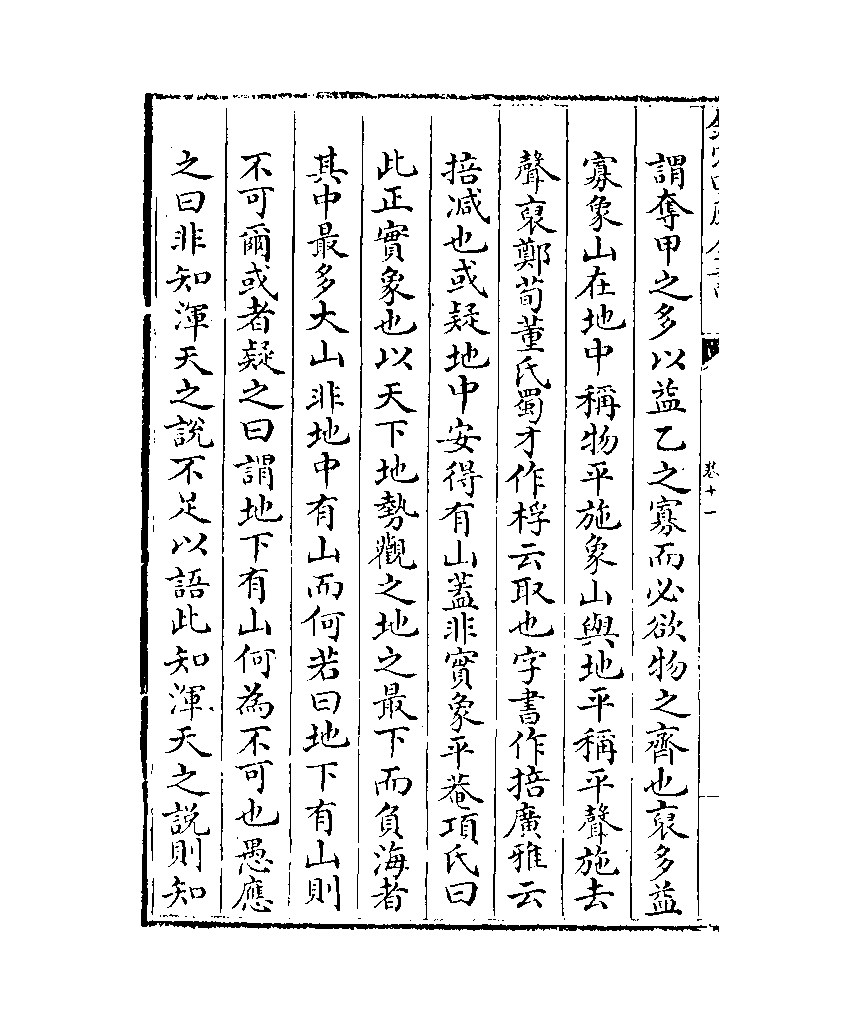 謂奪甲之多以益乙之寡而必欲物之齊也裒多益
寡象山在地中稱物平施象山與地平稱平聲施去
聲裒鄭荀董氏蜀才作桴云取也字書作掊廣雅云
掊减也或疑地中安得有山蓋非實象平菴項氏曰
此正實象也以天下地勢觀之地之最下而負海者
其中最多大山非地中有山而何若曰地下有山則
不可爾或者疑之曰謂地下有山何為不可也愚應
之曰非知渾天之說不足以語此知渾天之說則知
卷十一